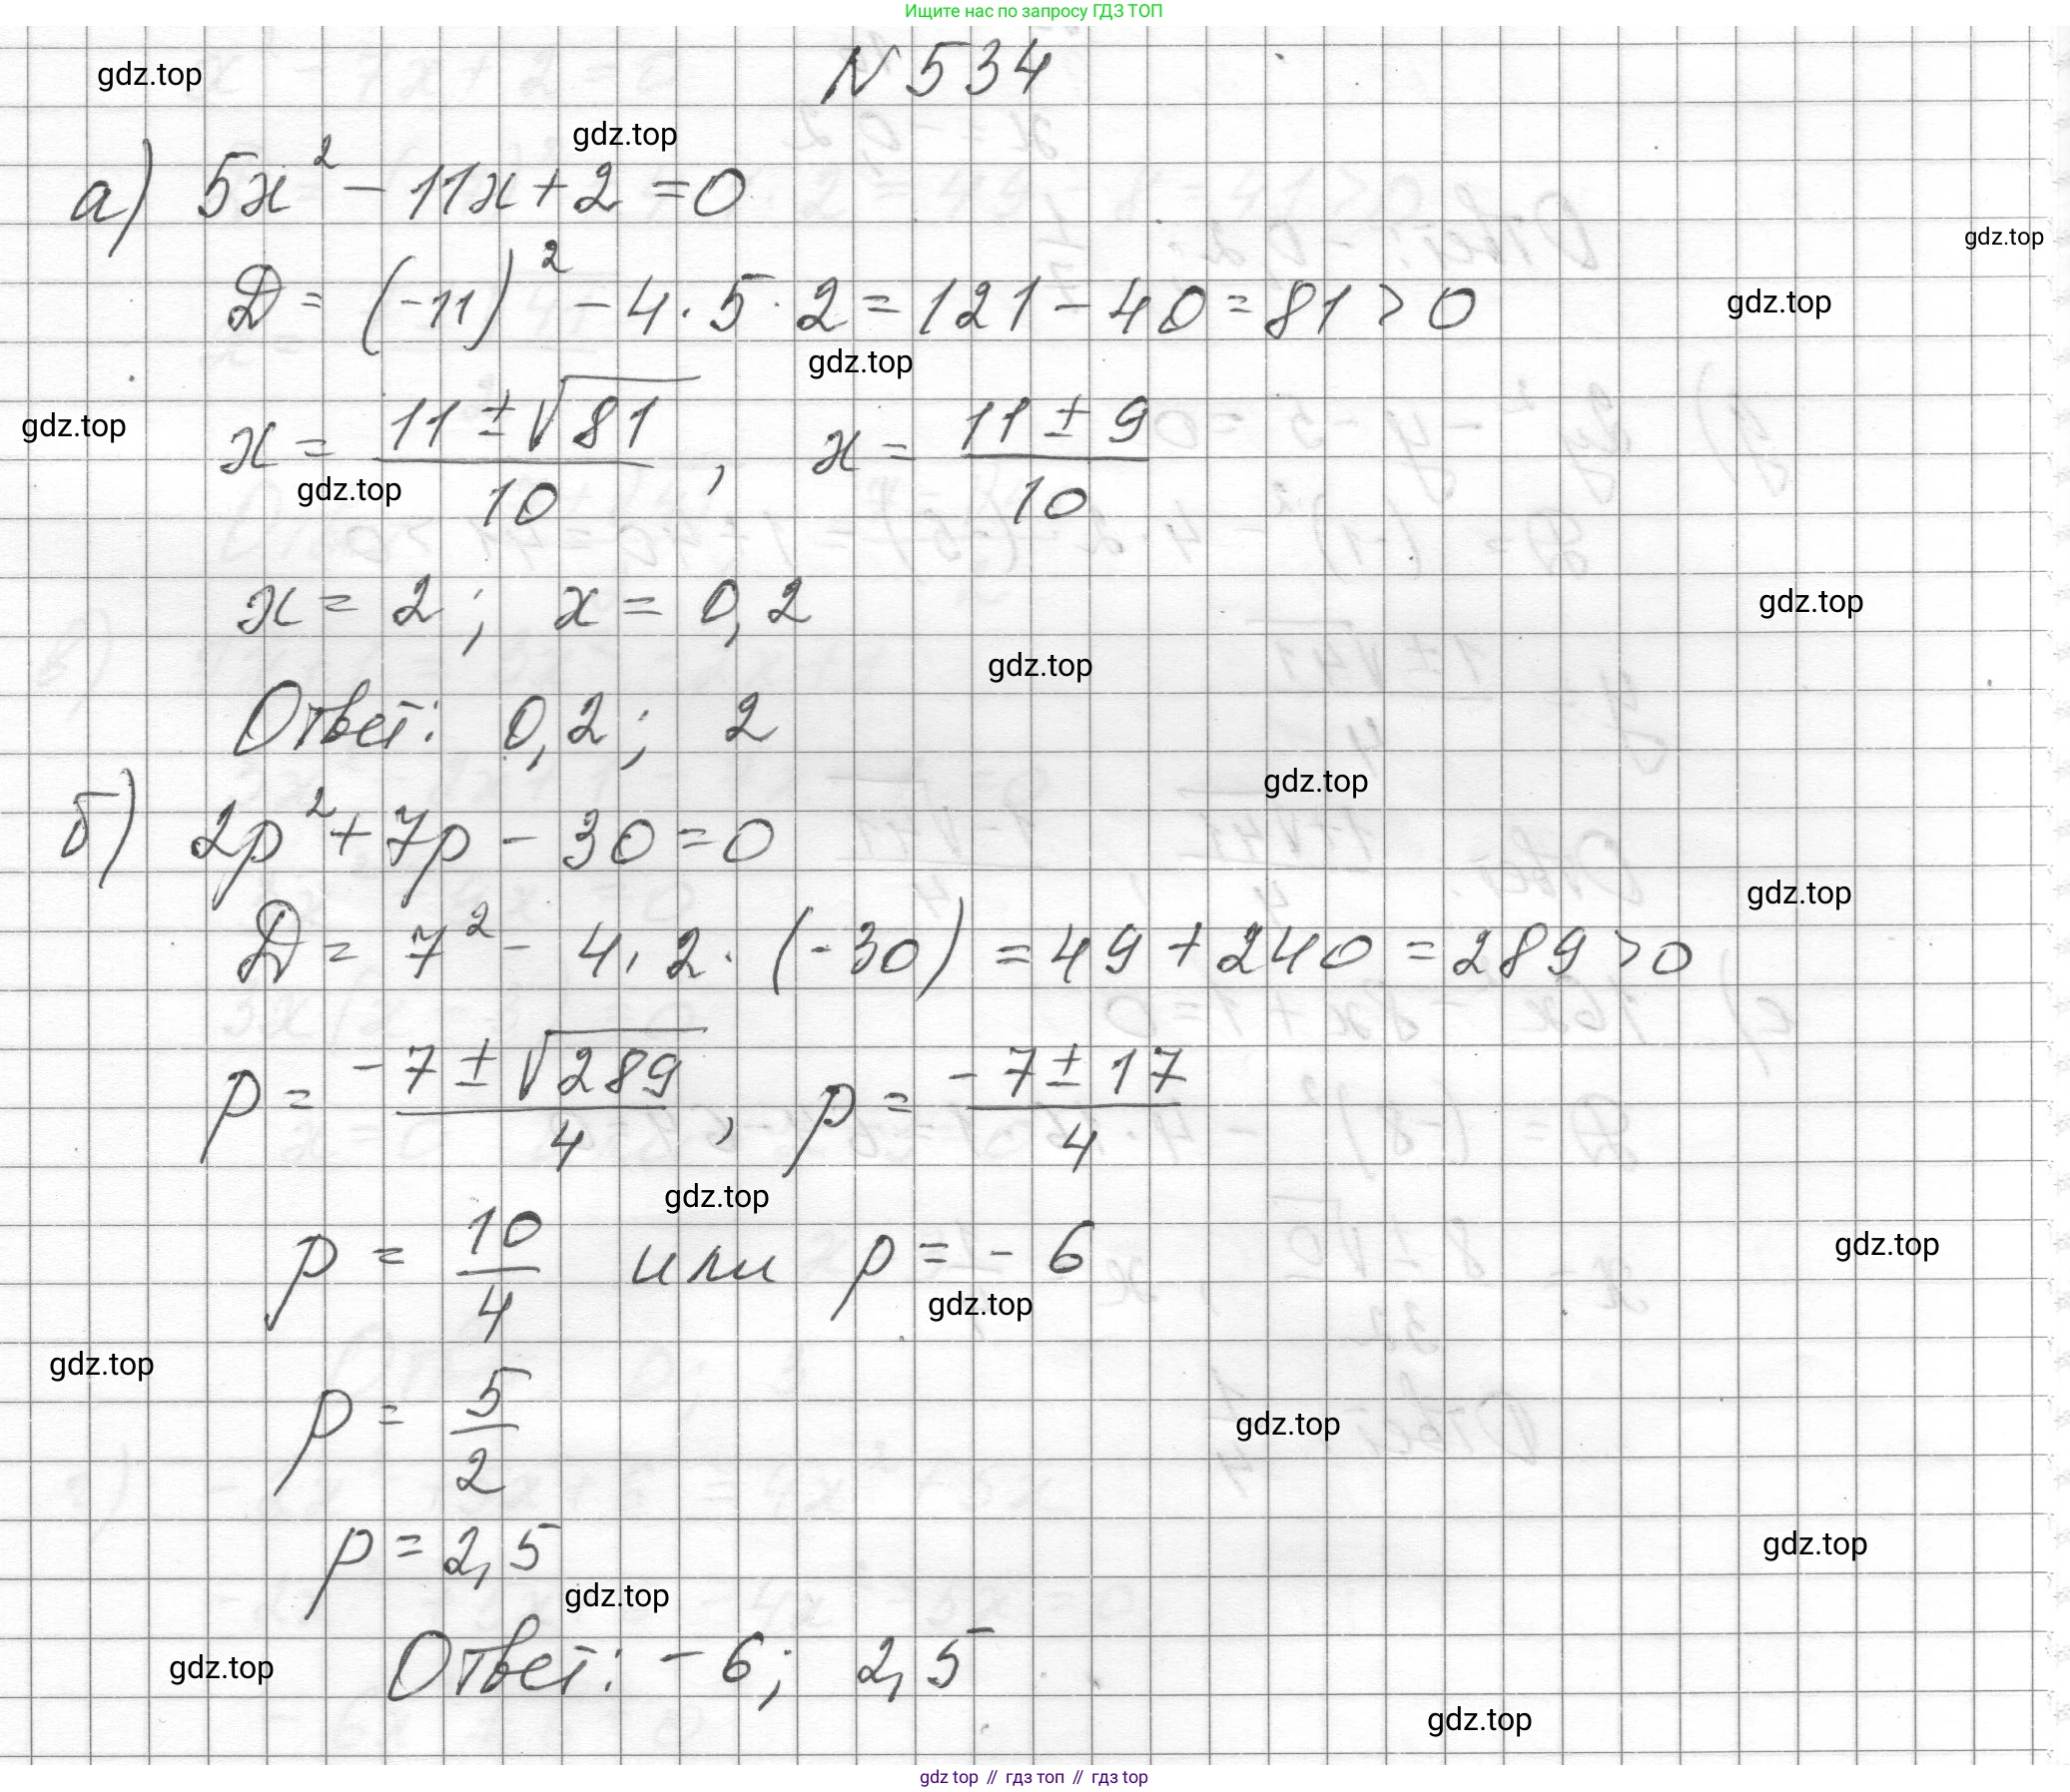 Ищите нас по запросу ГДЗ ТОП
N 534
gdz.top
gdz.top
а) 5x² - 11x + 2 = 0
gdz.top
D = (-11)² - 4 · 5 · 2 = 121 - 40 = 81 > 0
gdz.top
gdz.top
x = (11 ± √81)/10 , x = (11 ± 9)/10
gdz.top
gdz.top
x = 2 ; x = 0,2
gdz.top
gdz.top
Ответ: 0,2 ; 2
gdz.top
б) 2p² + 7p - 30 = 0
gdz.top
D = 7² - 4 · 2 · (-30) = 49 + 240 = 289 > 0
p = (-7 ± √289)/4 , p = (-7 ± 17)/4
gdz.top
p = 10/4 или p = - 6
gdz.top
gdz.top
gdz.top
p = 5/2
gdz.top
p = 2,5
gdz.top
gdz.top
Ответ: - 6 ; 2,5
gdz.top
gdz.top
gdz top // гдз топ // гдз top